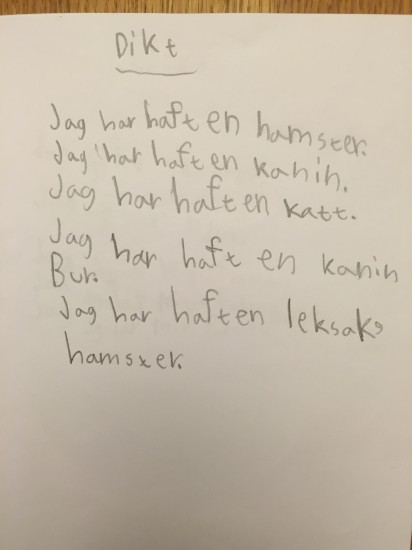 Dikt
Jag har haft en hamster.
Jag har haft en kanin.
Jag har haft en katt.
Jag har haft en kanin
Bur.
Jag har haft en leksaks
hamster.